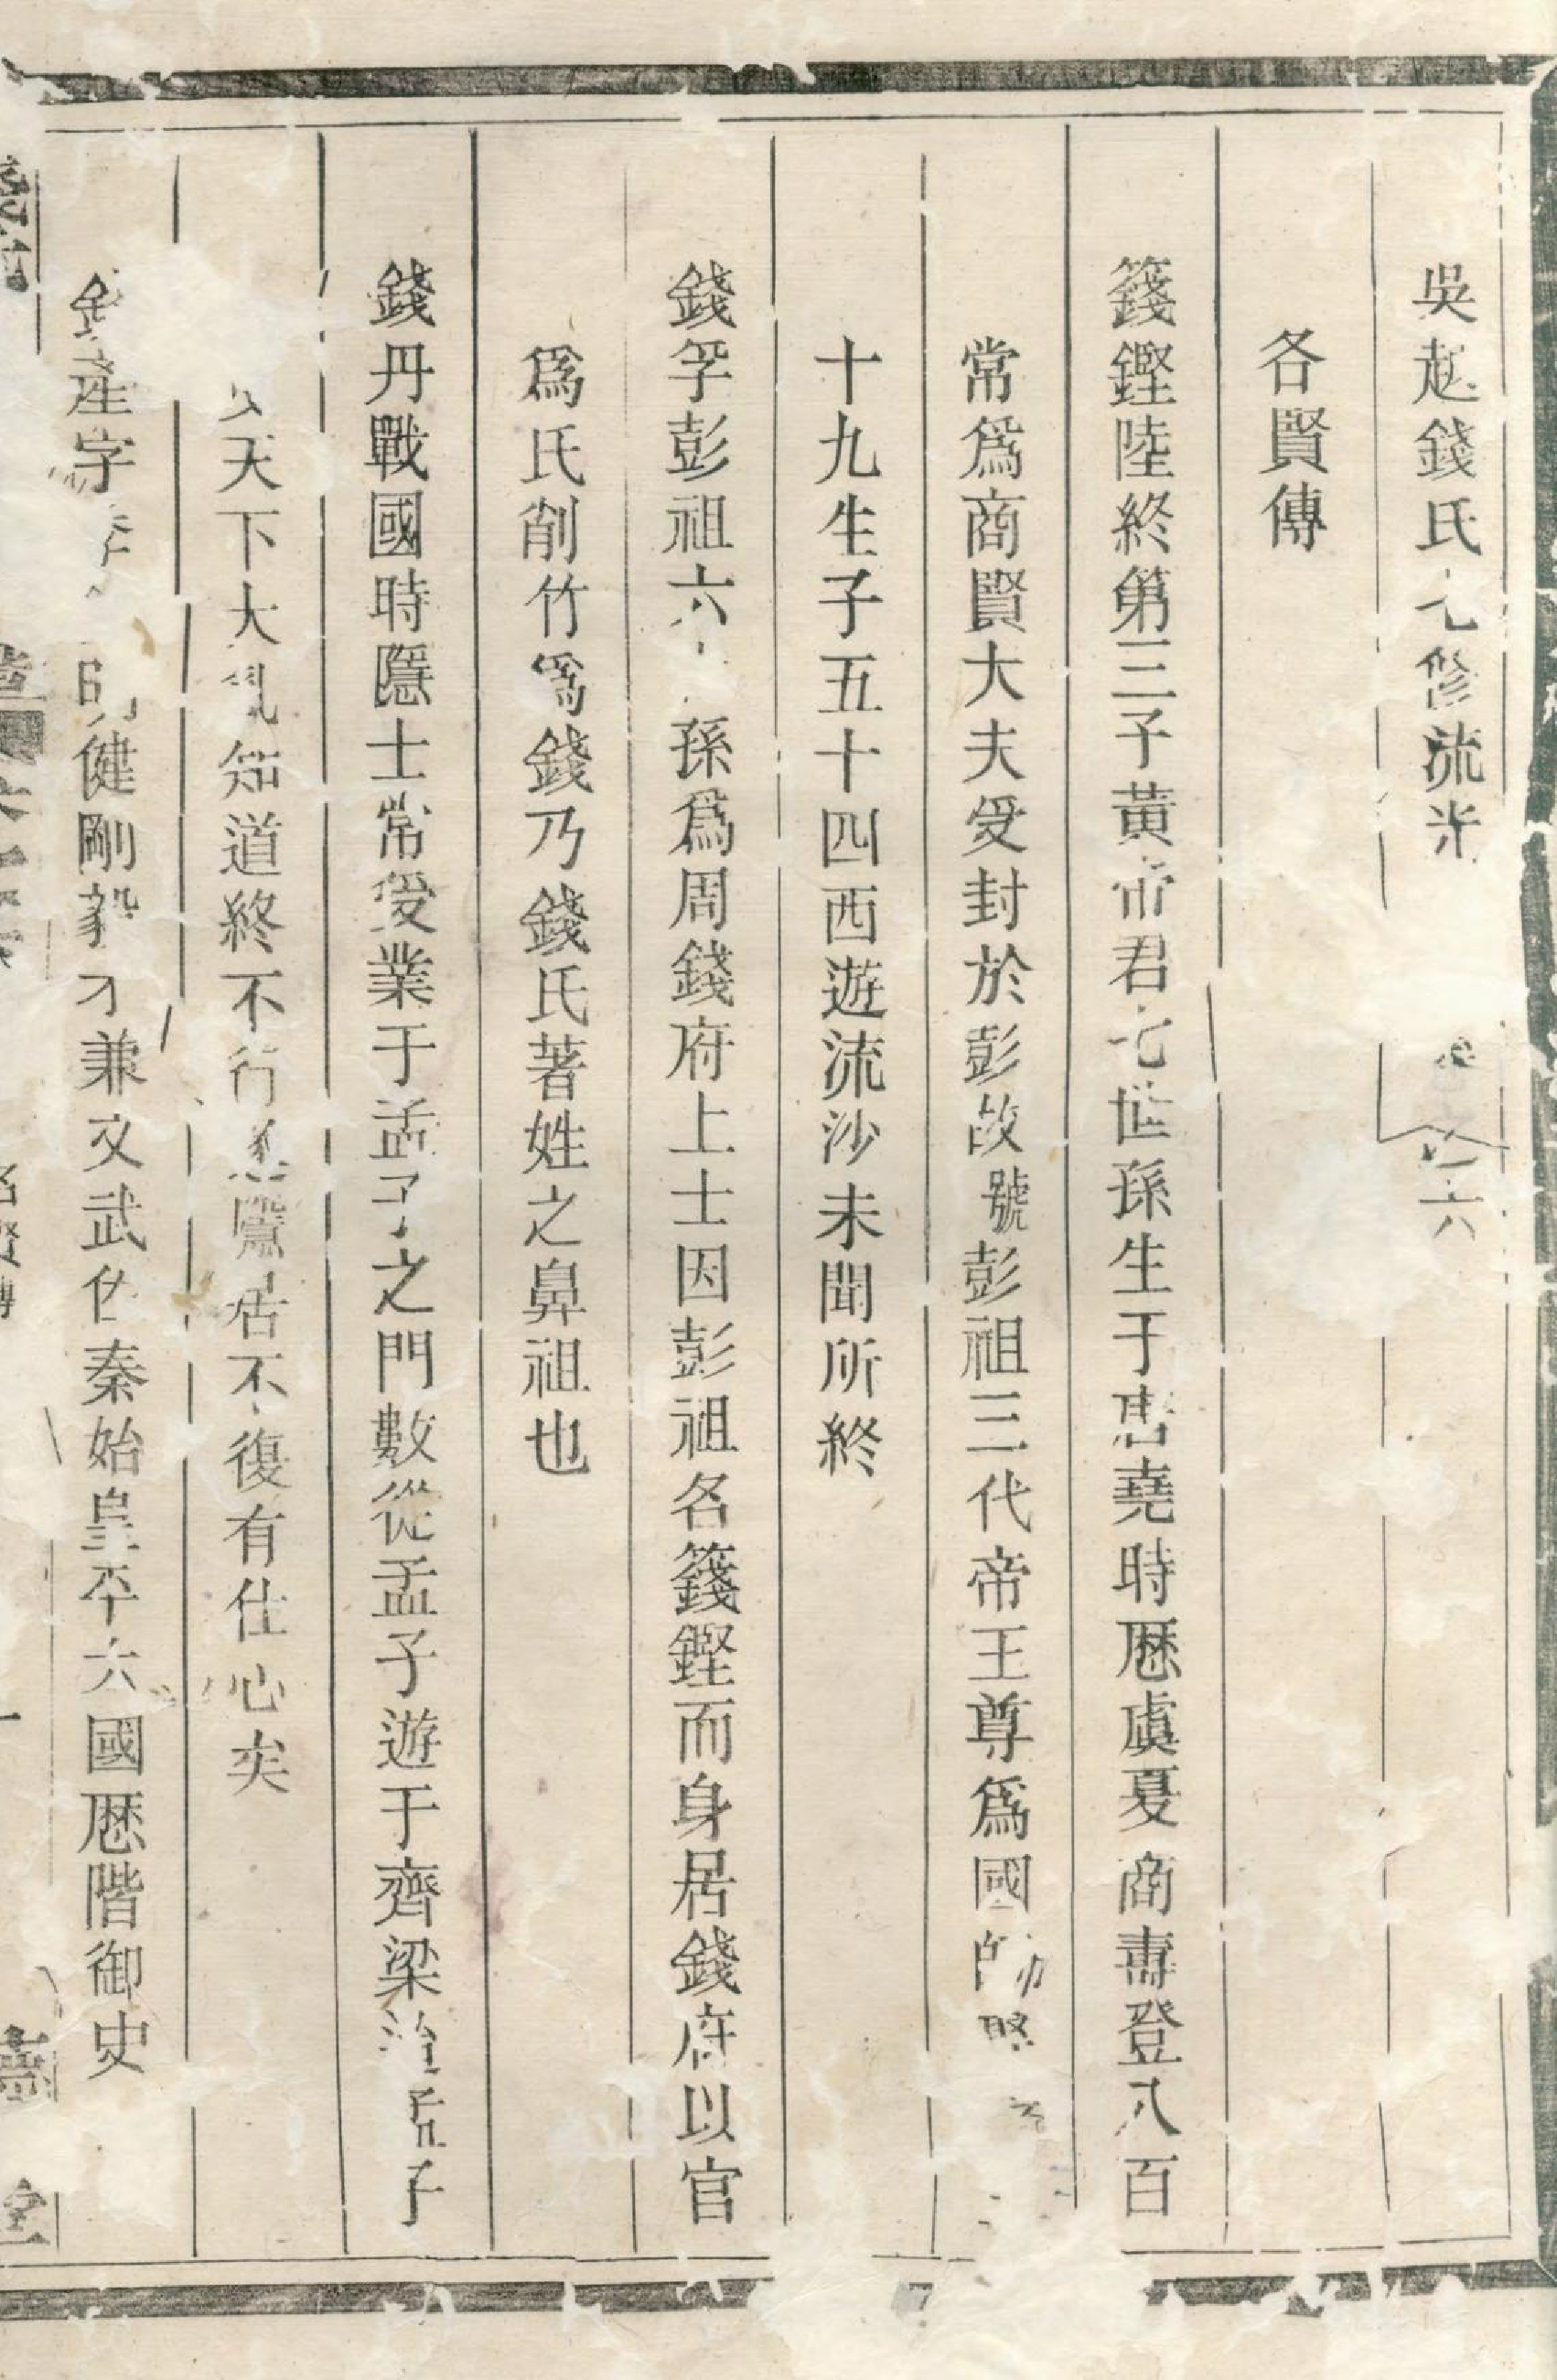 吳越錢氏七修流光卷六
各賢傳
籛鏗陸終第三子黃帝君七世孫生于唐堯時歷虞夏商壽登八百
常爲商賢大夫受封於彭故號彭祖三代帝王尊爲國師娶
十九生子五十四西遊流沙未聞所終
錢孚彭祖六孫爲周錢府上士因彭祖名籛鏗而身居錢府以官
爲氏削竹爲錢乃錢氏著姓之鼻祖也
錢丹戰國時隱士常受業于孟子之門數從孟子遊于齊梁治孟子
天下大亂知道終不行隱居不復有仕心矣
產字健剛毅才兼文武仕秦始皇平六國歷階御史